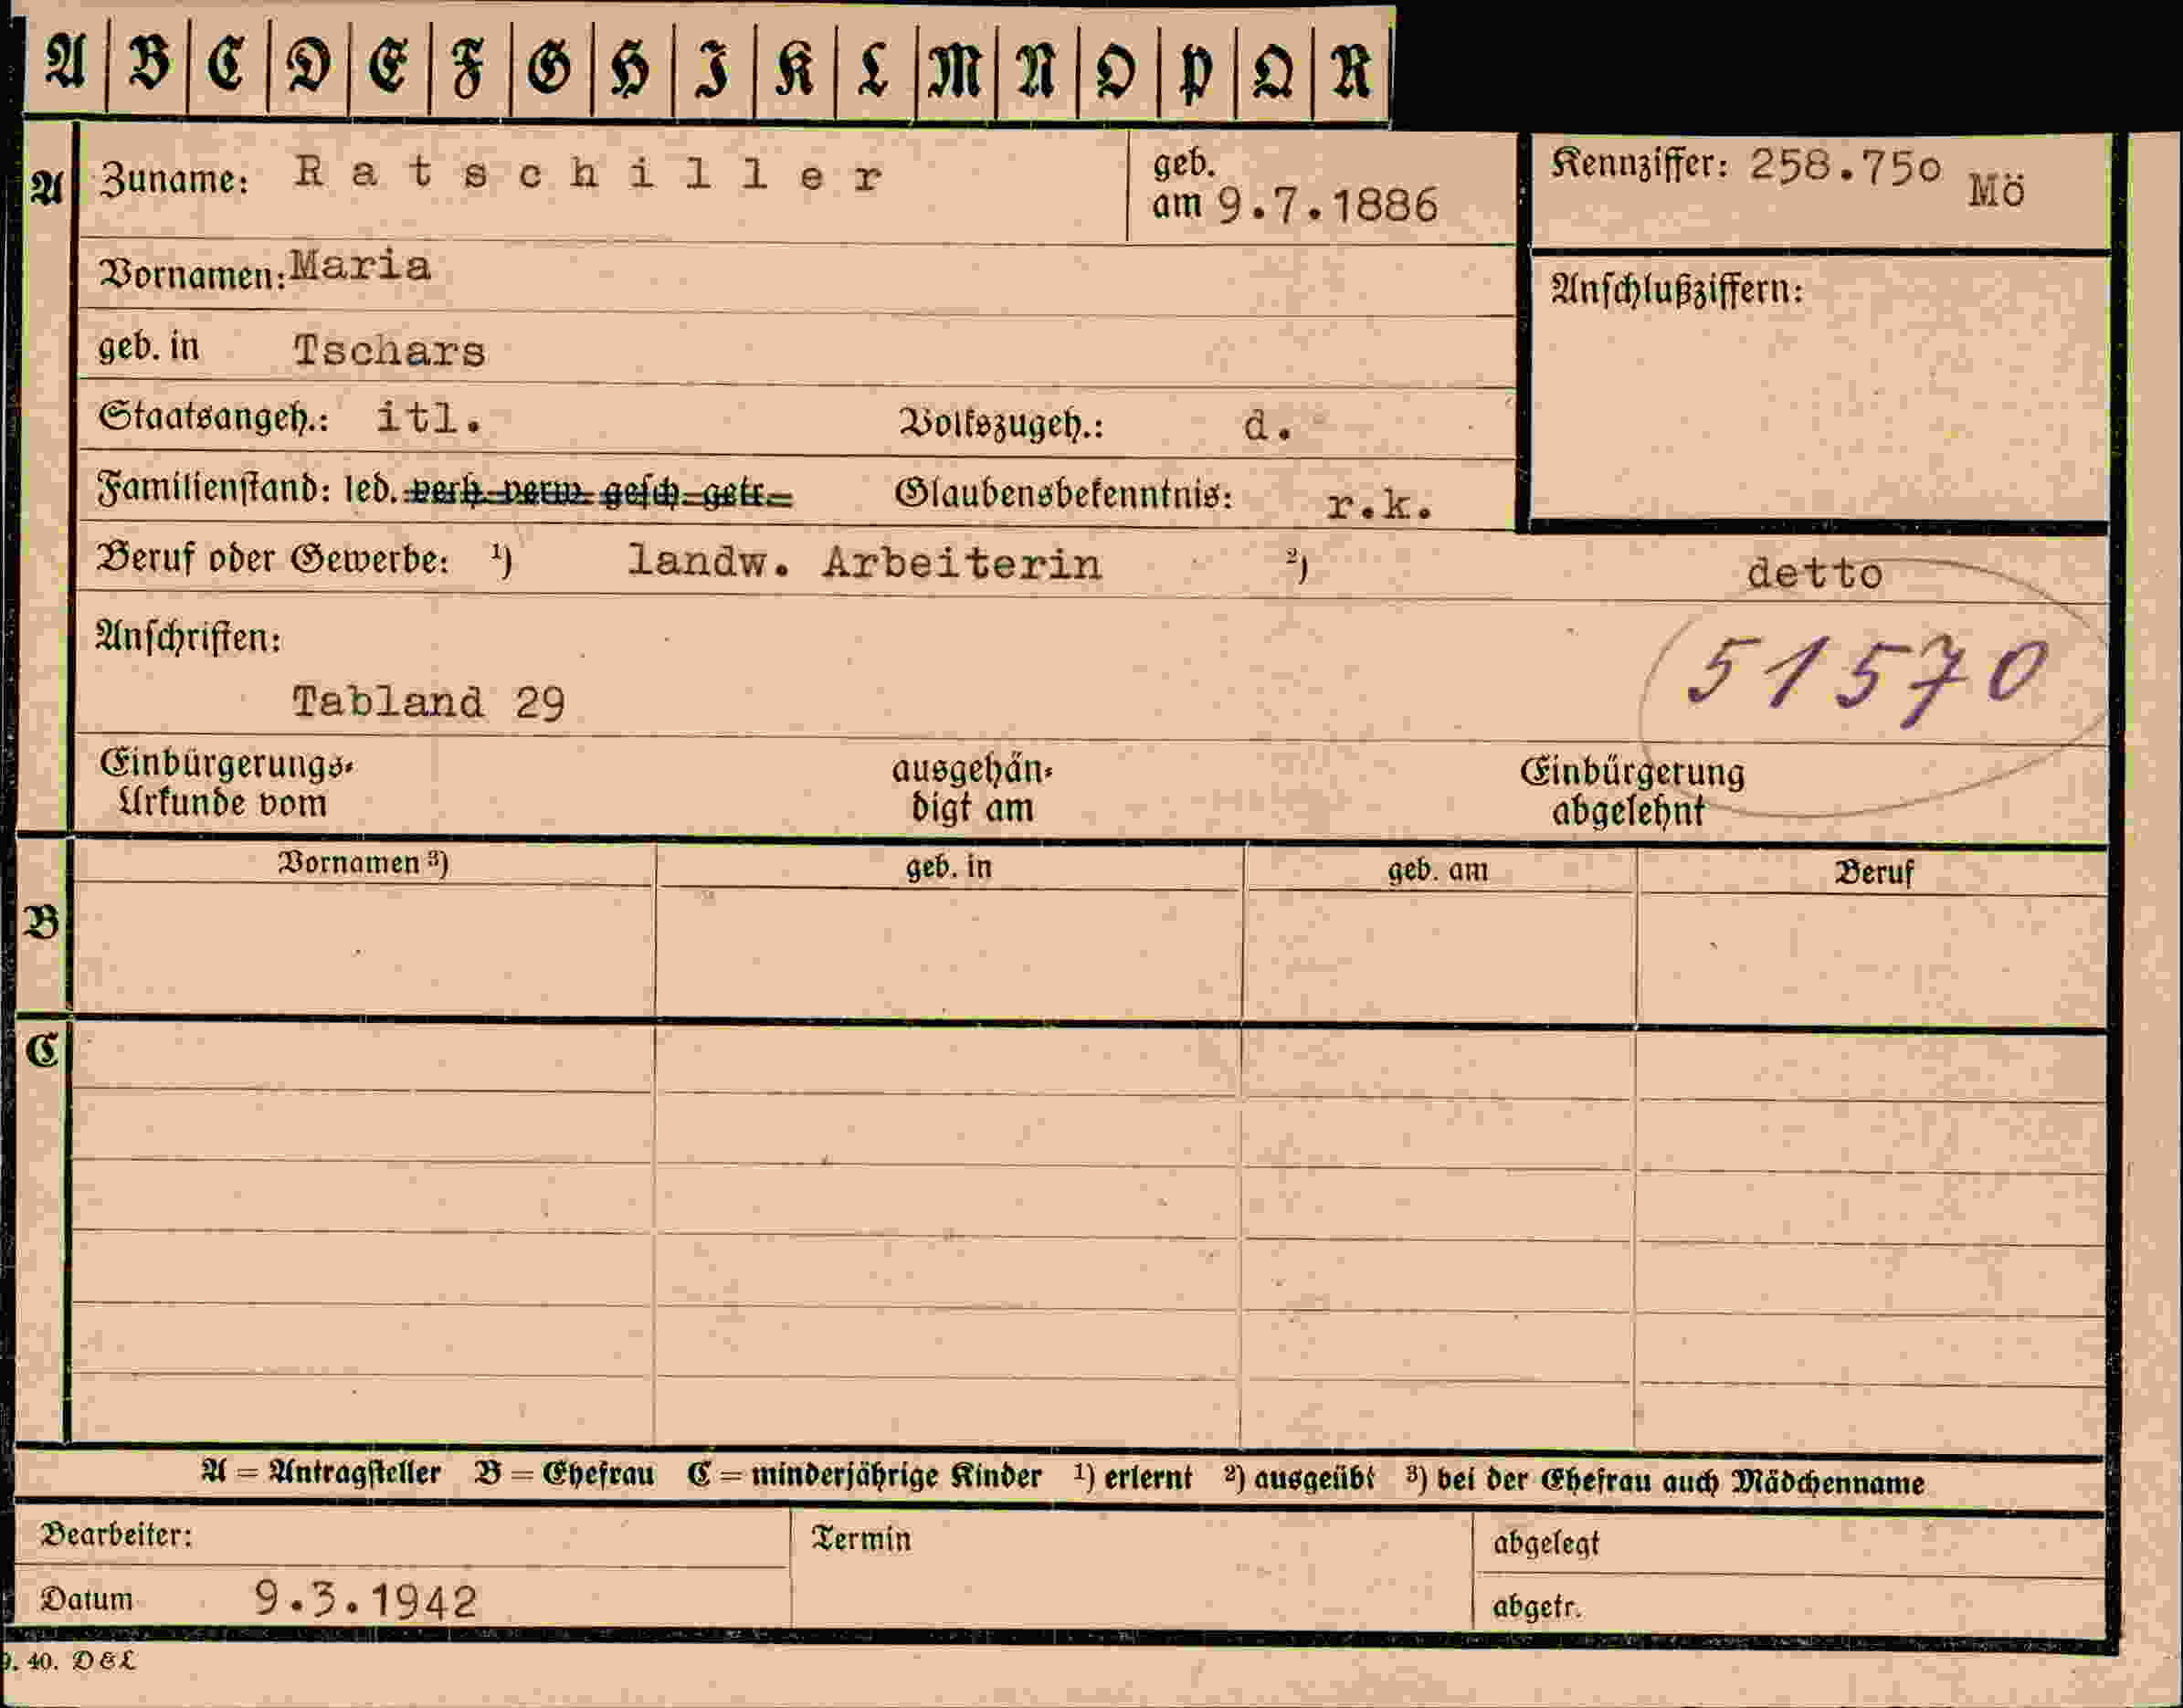 A B C D E F G H I K L M N O P Q R
A Zuname: Ratschiller geb. am 9.7.1886 Kennziffer: 258.750 Mö
Vornamen: Maria Anschlußziffern:
geb. in Tschars
Staatsangeh.: itl. Volkszugeh.: d.
Familienstand: led. verh. verw. gesch. getr. Glaubensbekenntnis: r.k.
Beruf oder Gewerbe: 1) landw. Arbeiterin 2) detto
Anschriften:
51570
Tabland 29
Einbürgerungs- ausgehän- Einbürgerung
Urkunde vom digt am abgelehnt
Vornamen 3) geb. in geb. am Beruf
B
C
A = Antragsteller B = Ehefrau C = minderjährige Kinder 1) erlernt 2) ausgeübt 3) bei der Ehefrau auch Mädchenname
Bearbeiter: Termin abgelegt
Datum 9.3.1942 abgetr.
9. 40. D&L